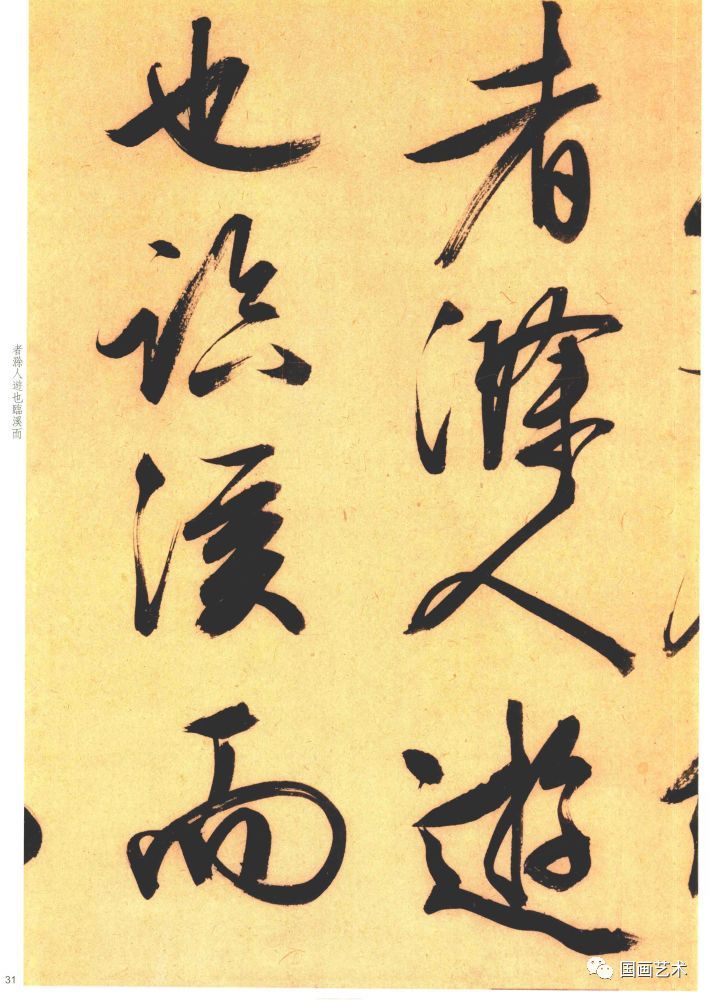 者滁人遊
也臨溪而
者滁人遊也臨溪而
31
国画艺术